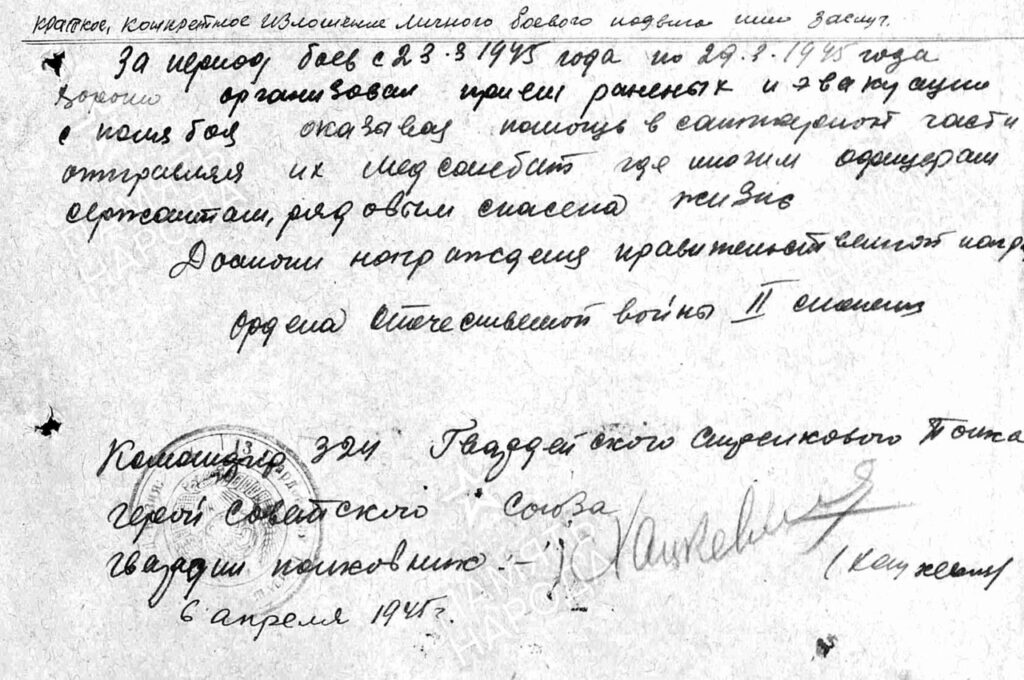 Краткое, конкретное изложение личного боевого подвига или заслуг.
За период боев с 23.3 1945 года по 29.3.1945 года
хорошо организовал прием раненых и эвакуации
с поля боя оказывая помощь в санитарной части
отправляя их медсанбат где многим офицерам
сержантам, рядовым спасена жизнь
Достоин награждения правительственной
Ордена Отечественной войны II степени
Командир 324 Гвардейского Стрелкового Полка
Герой Советского Союза
гвардии полковник :-
6 апреля 1945 г.
ПАМЯТЬ
НАРОДА